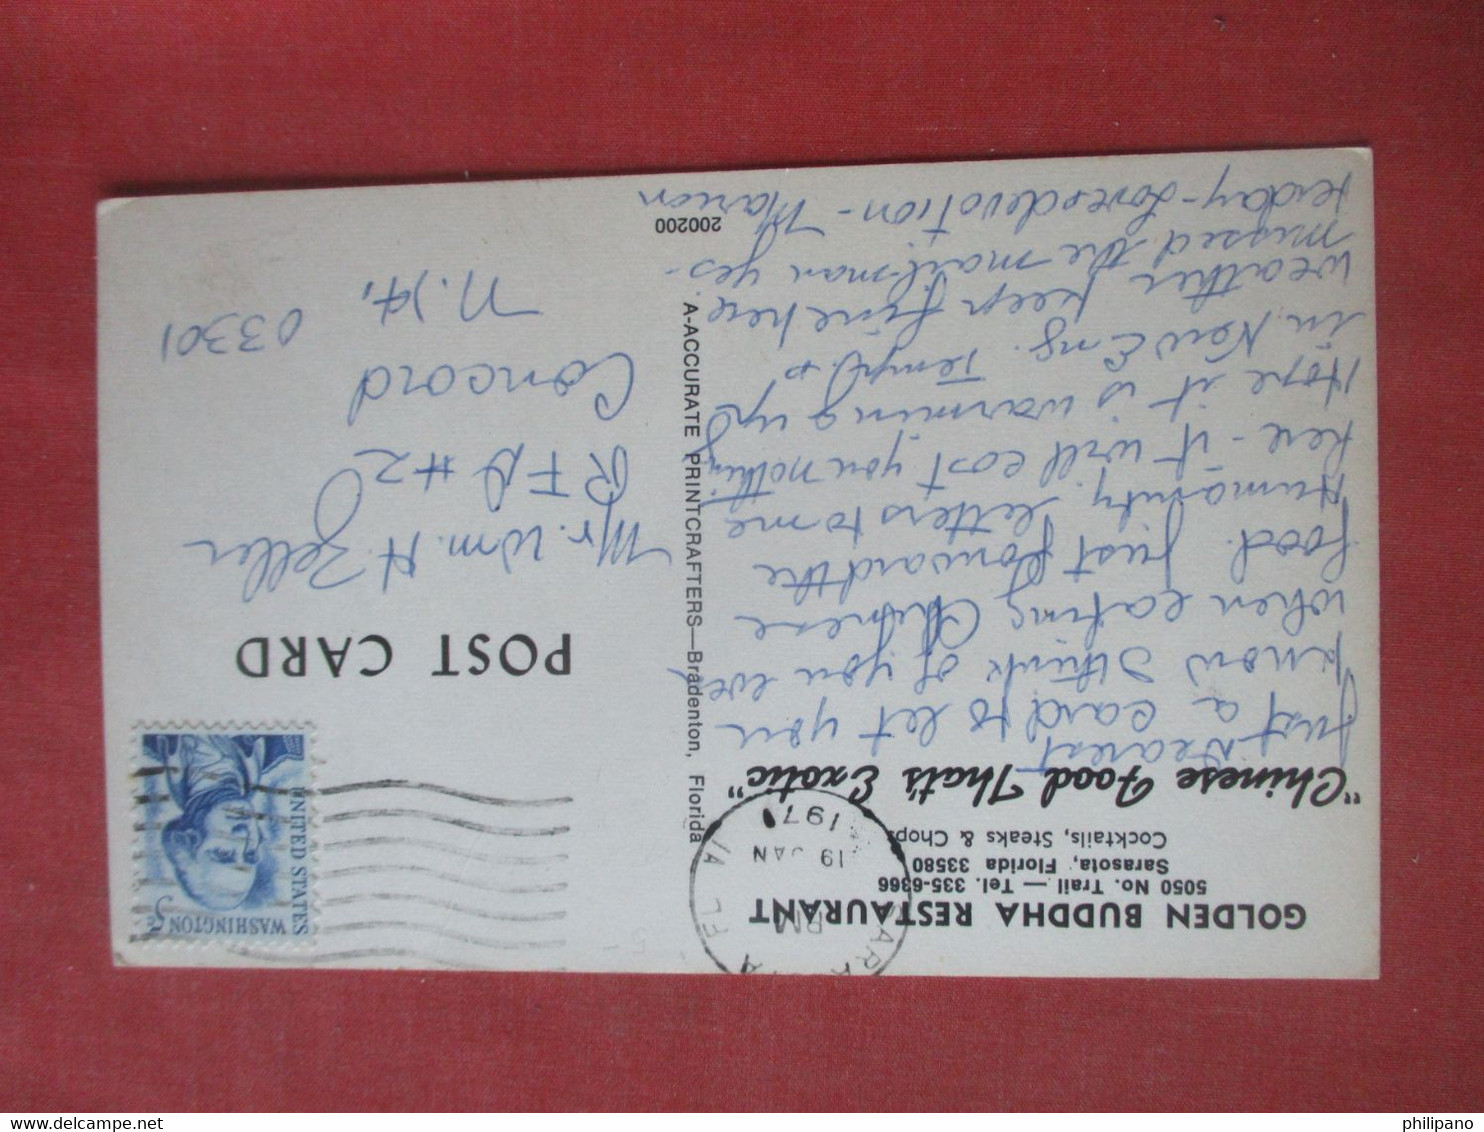 GOLDEN BUDDHA RESTAURANT
5050 No. Trail — Tel. 335-6366
Sarasota, Florida 33580
Cocktails, Steaks & Chops
"Chinese Food That's Exotic"
Dearest,
Just a card to let you
know I think of you even
when eating Chinese
food. Just forward the
Humanity letters to me
here - it will cost you nothing
Hope it is warming up
in New Eng. Temp. &
weather keep fine here
missed the mail-man yes-
terday - Love & devotion - Marion
A-ACCURATE PRINTCRAFTERS—Bradenton, Florida
200200
SARASOTA FLA
PM
19 JAN
1971
UNITED STATES
WASHINGTON 5c
POST CARD
Mr. Wm. H. Zeller
RFD #2
Concord
N.H.
03301
philipano